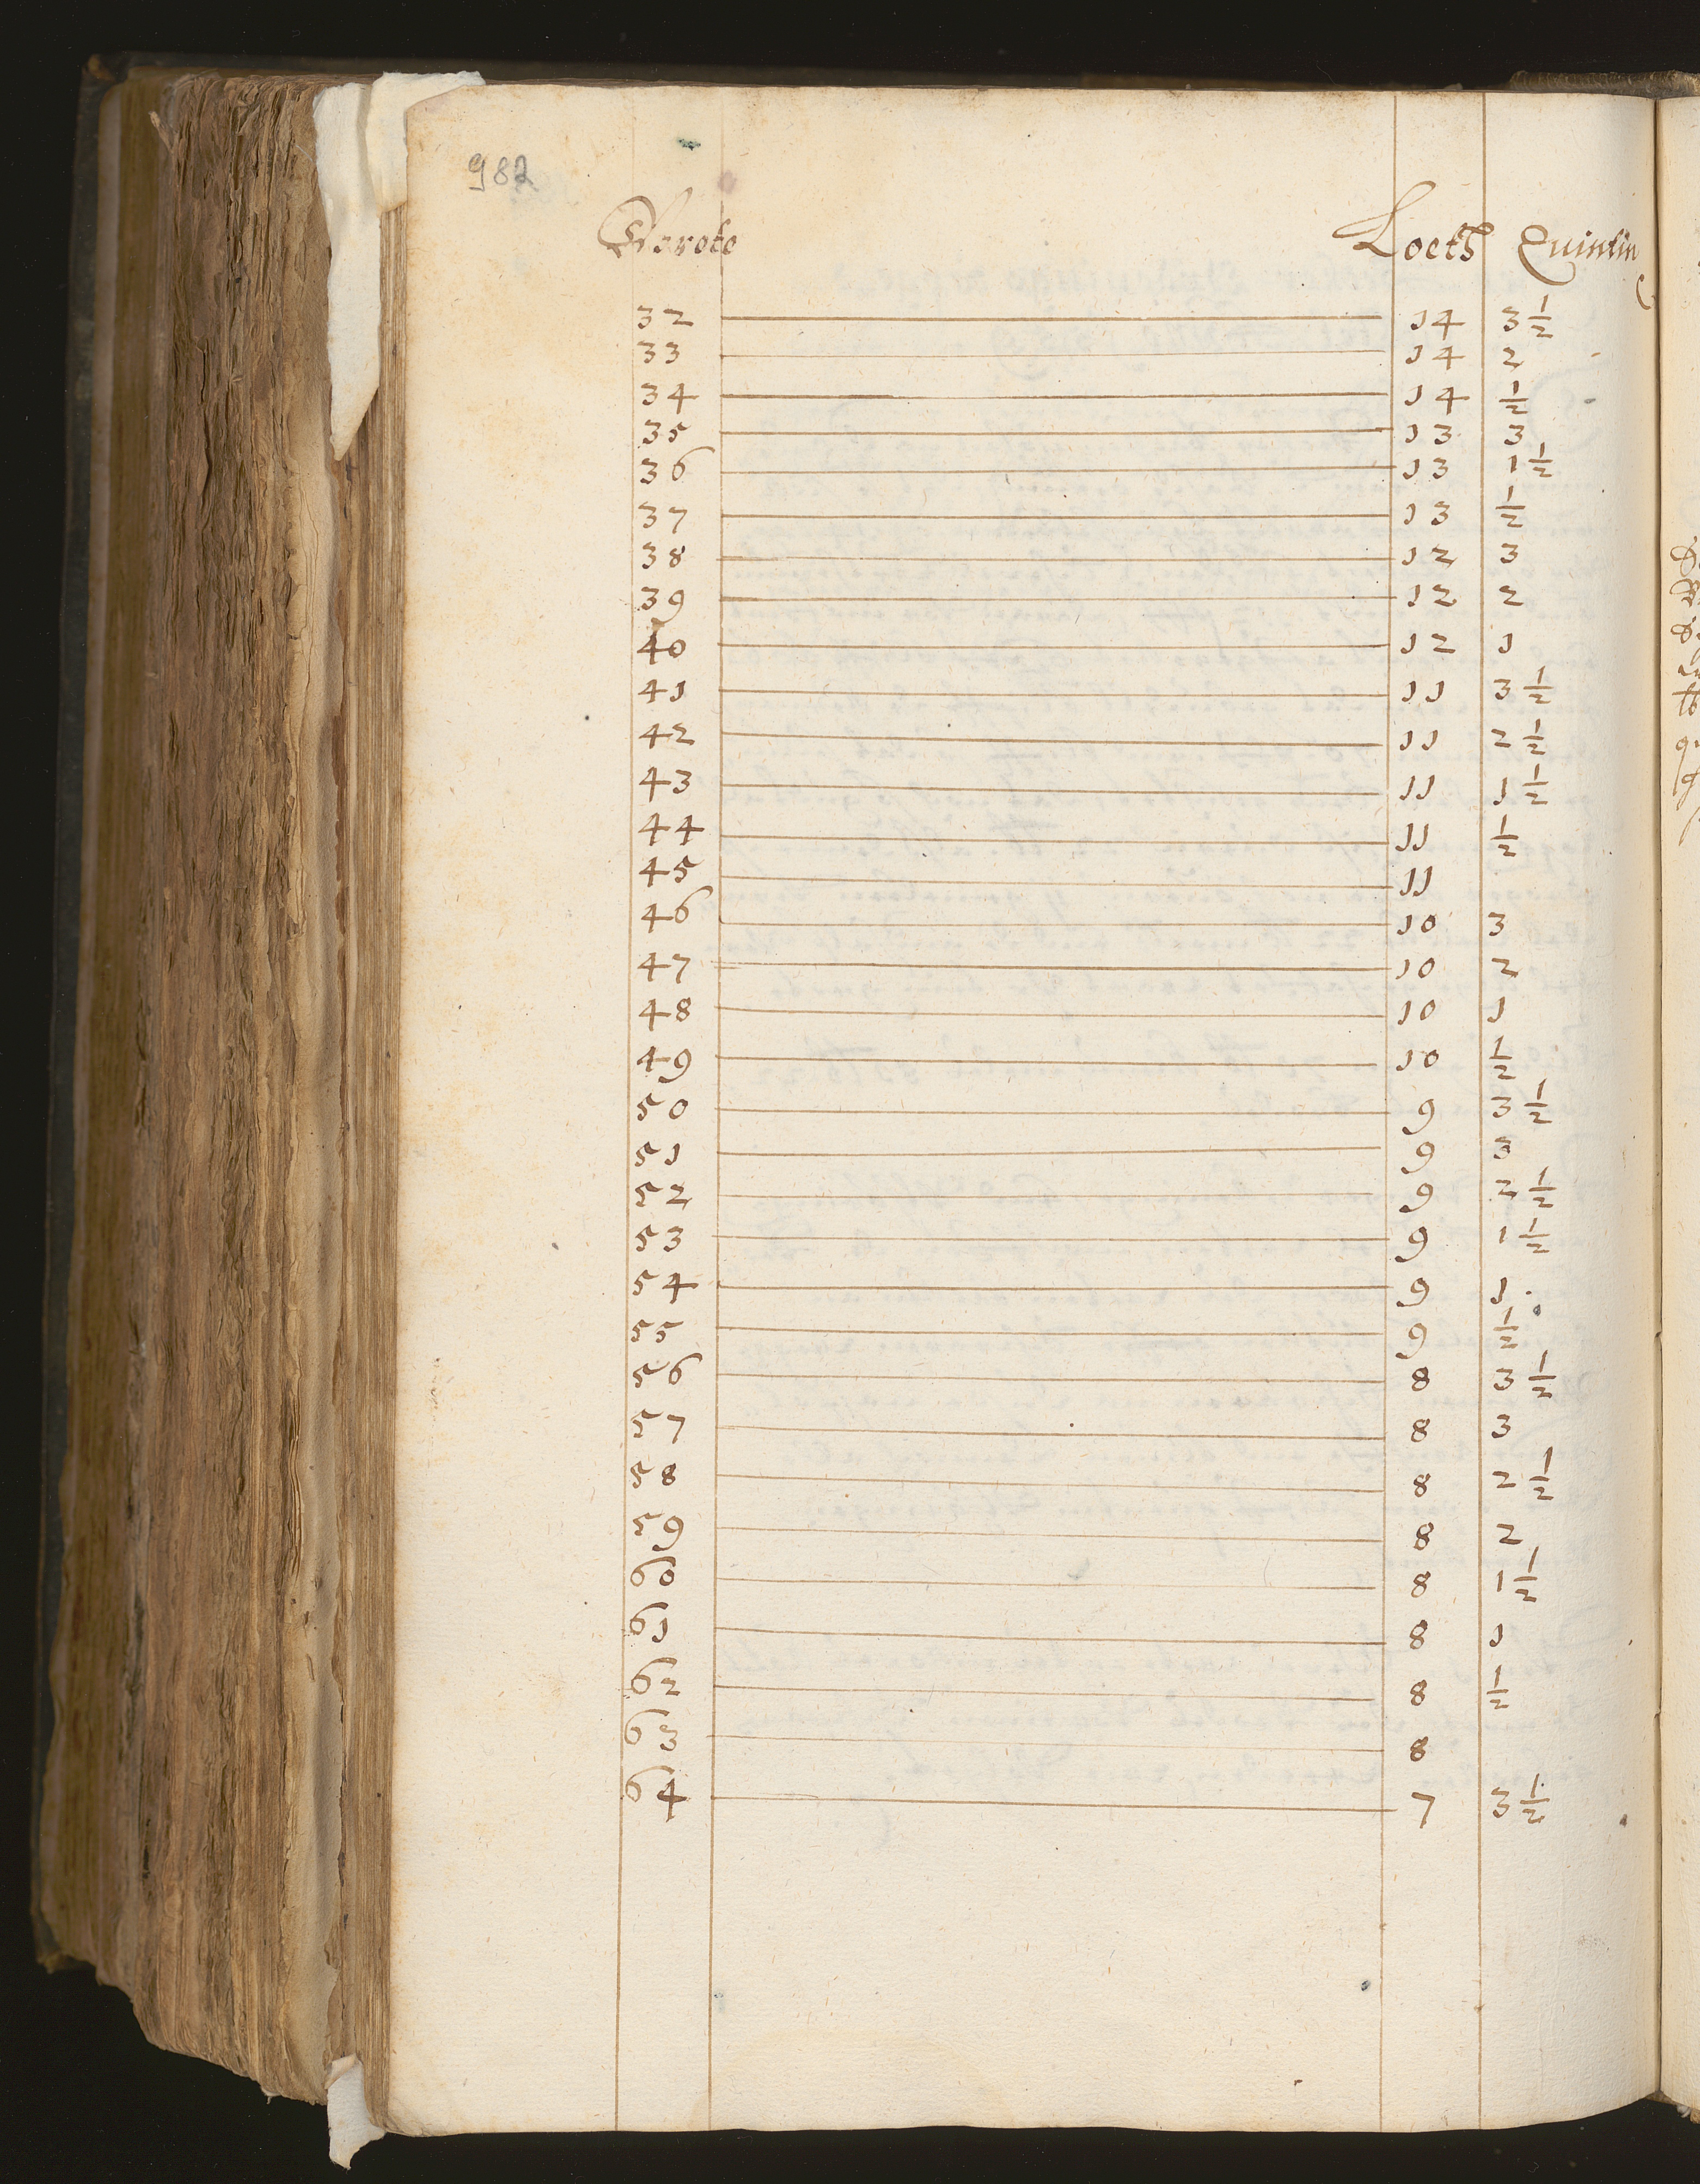 982
Groote Loeth Quintin
32 14 3 1/2
33 14 2
34 14 1/2
35 13 3
36 13 1 1/2
37 13 1/2
38 12 3
39 12 2
40 12 1
41 11 3 1/2
42 11 2 1/2
43 11 1 1/2
44 11 1/2
45 11
46 10 3
47 10 2
48 10 1
49 10 1/2
50 9 3 1/2
51 9 3
52 9 2 1/2
53 9 1 1/2
54 9 1
55 9 1/2
56 8 3 1/2
57 8 3
58 8 2 1/2
59 8 2
60 8 1 1/2
61 8 1
62 8 1/2
63 8
64 7 3 1/2